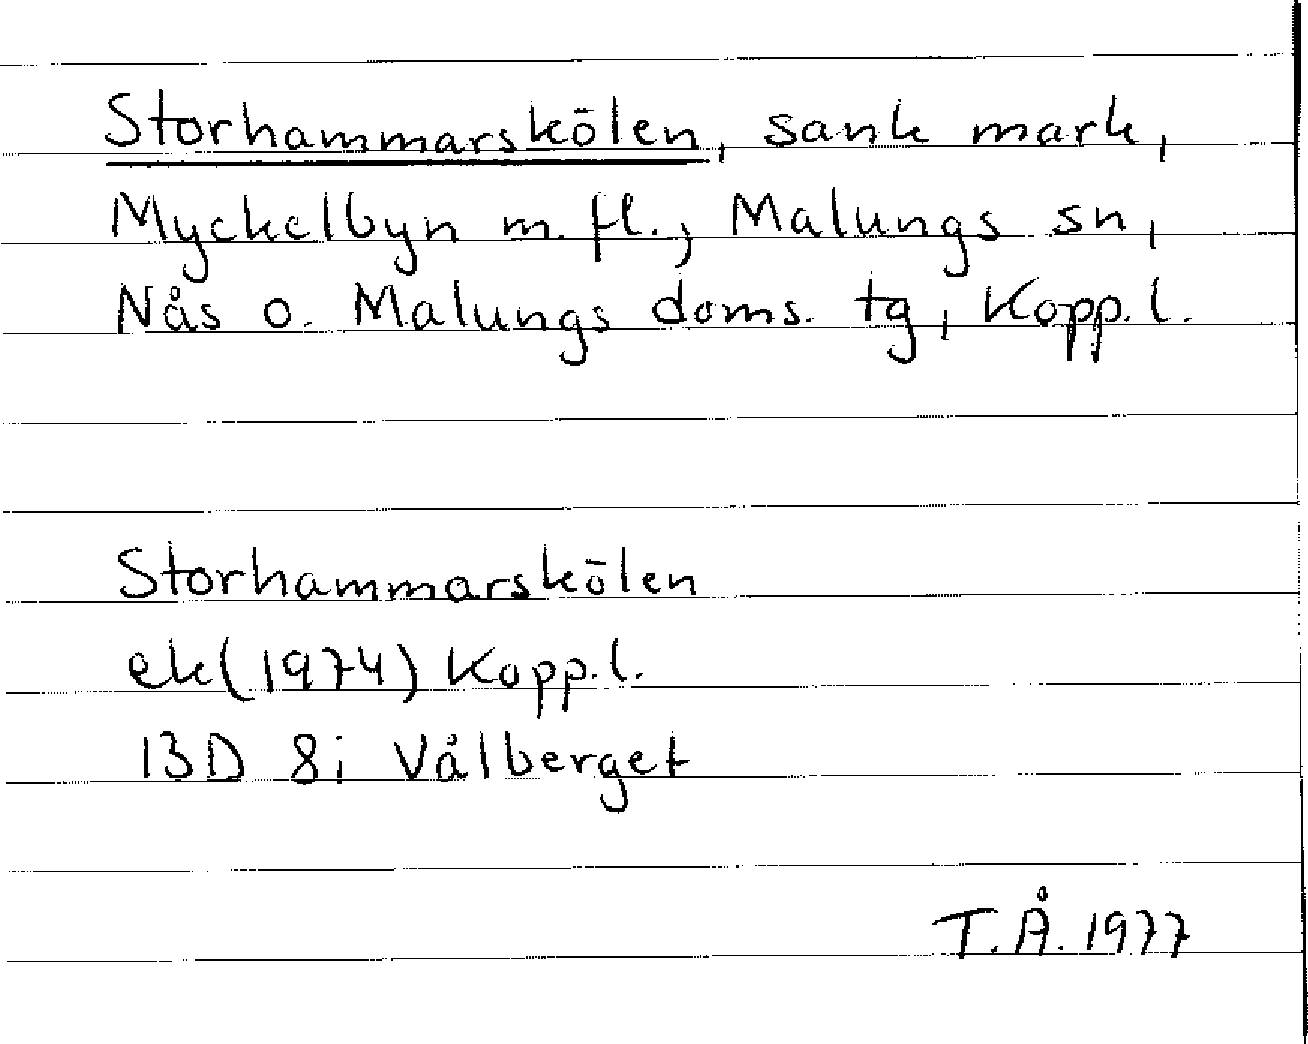 Storhammarskölen, sank mark,
Myckelbyn m. fl., Malungs sn,
Nås o. Malungs doms. tg, Kopp.l.
Storhammarskölen
ek(1974) Kopp.l.
13D 8i Vålberget
T.Å. 1977